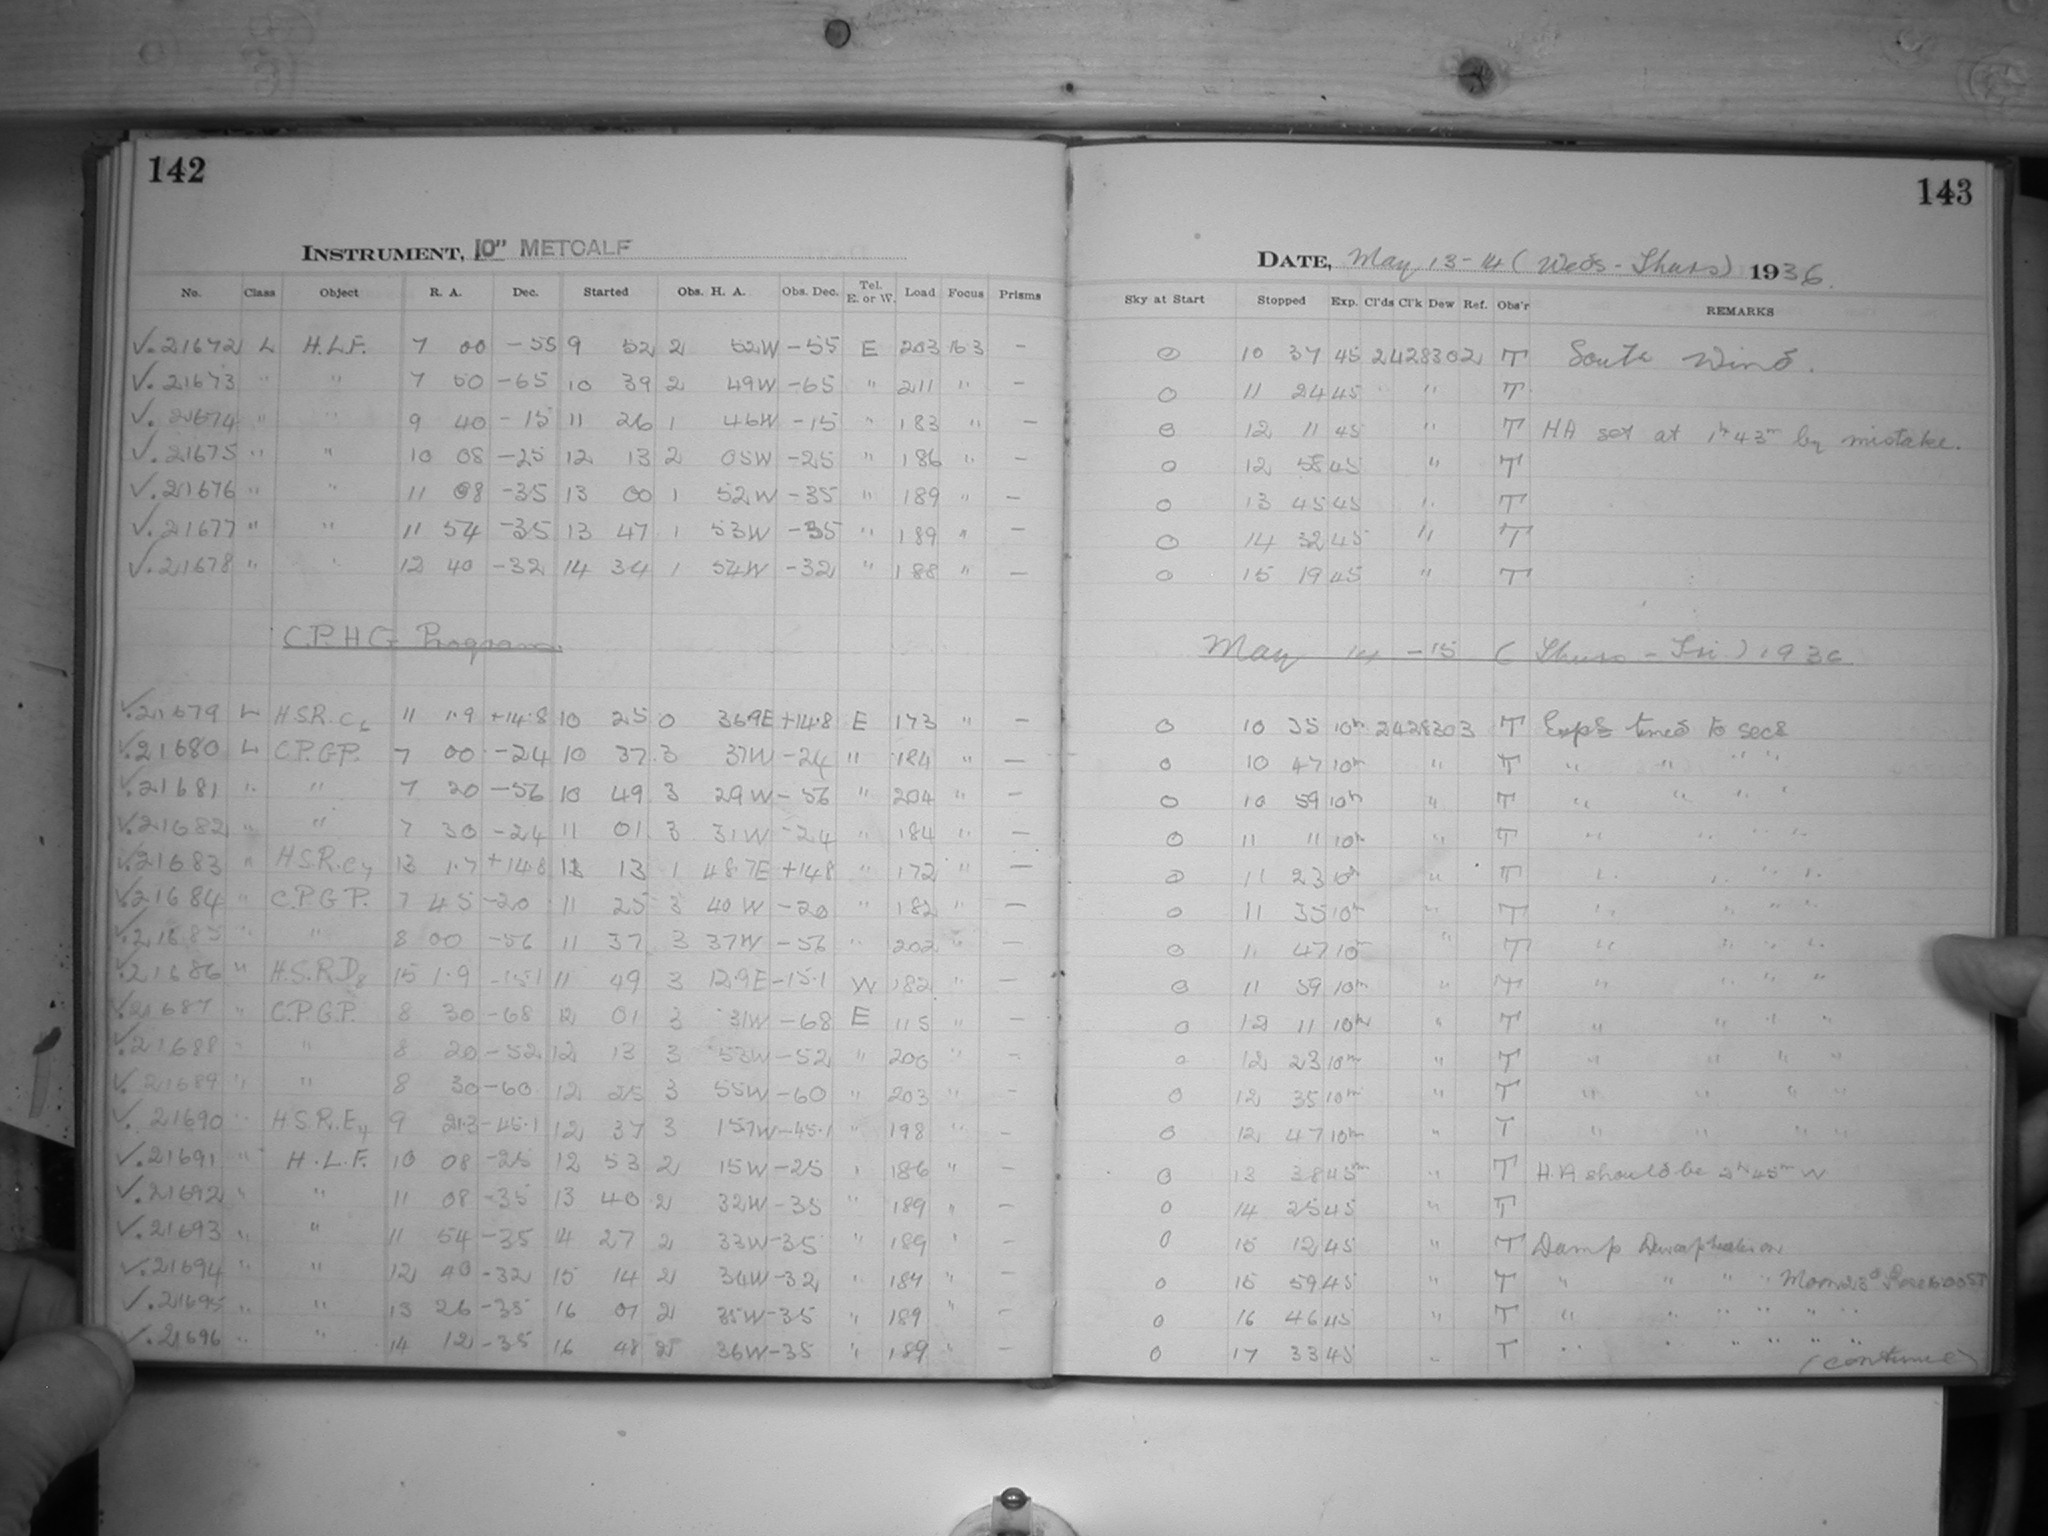 142
INSTRUMENT, 10" METCALF
No. Class Object R. A. Dec. Started Obs. H. A. Obs. Dec. Tel. E. or W. Load Focus Prisms
√. 21672 L H.L.F. 7 00 -55 9 52 2 52W -55 E 203 163 -
√. 21673 " " 7 50 -65 10 39 2 49W -65 " 211 " -
√. 21674 " " 9 40 -15 11 26 1 46W -15 " 183 " -
√. 21675 " " 10 08 -25 12 13 2 05W -25 " 186 " -
√. 21676 " " 11 08 -35 13 00 1 52W -35 " 189 " -
√. 21677 " " 11 54 -35 13 47 1 53W -35 " 189 " -
√. 21678 " " 12 40 -32 14 34 1 54W -32 " 188 " -
C.P.H G Program
√. 21679 L H.S.R. C6 11 1.9 +14.8 10 25 0 36.9E +14.8 E 173 " -
√. 21680 L C.P.G.P. 7 00 -24 10 37 3 37W -24 " 184 " -
√. 21681 " " 7 20 -56 10 49 3 29W -56 " 204 " -
√. 21682 " " 7 30 -24 11 01 3 31W -24 " 184 " -
√. 21683 " H.S.R. C7 13 1.7 +14.8 11 13 1 48.7E +14.8 " 172 " -
√. 21684 " C.P.G.P. 7 45 -20 11 25 3 40W -20 " 182 " -
√. 21685 " " 8 00 -56 11 37 3 37W -56 " 202 " -
√. 21686 " H.S.R. D8 15 1.9 -15.1 11 49 3 12.9E -15.1 W 182 " -
√. 21687 " C.P.G.P. 8 30 -68 12 01 3 31W -68 E 115 " -
√. 21688 " " 8 20 -52 12 13 3 53W -52 " 200 " -
√. 21689 " " 8 30 -60 12 25 3 55W -60 " 203 " -
√. 21690 " H.S.R. E4 9 21.3 -45.1 12 37 3 15.7W -45.1 " 198 " -
√. 21691 " H.L.F. 10 08 -25 12 53 2 15W -25 " 186 " -
√. 21692 " " 11 08 -35 13 40 2 32W -35 " 189 " -
√. 21693 " " 11 54 -35 14 27 2 33W -35 " 189 " -
√. 21694 " " 12 40 -32 15 14 2 34W -32 " 187 " -
√. 21695 " " 13 26 -35 16 01 2 35W -35 " 189 " -
√. 21696 " " 14 12 -35 16 48 2 36W -35 " 189 " -
143
DATE, May 13-14 (Weds - Thurs) 1936.
Sky at Start Stopped Exp. Cl'ds Cl'k Dew Ref. Obs'r REMARKS
0 10 37 45 2428302 T South Wind.
0 11 24 45 " T
0 12 11 45 " T HA set at 1h 43m by mistake.
0 12 58 45 " T
0 13 45 45 " T
0 14 32 45 " T
0 15 19 45 " T
May 14 - 15 (Thurs - Fri) 1936
0 10 35 10m 2428303 T Exps timed to secs
0 10 47 10m " T " " " "
0 10 59 10m " T " " " "
0 11 11 10m " T " " " "
0 11 23 10m " T " " " "
0 11 35 10m " T " " " "
0 11 47 10m " T " " " "
0 11 59 10m " T " " " "
0 12 11 10m " T " " " "
0 12 23 10m " T " " " "
0 12 35 10m " T " " " "
0 12 47 10m " T " " " "
0 13 38 45m " T H.A should be 2h 45m W
0 14 25 45 " T
0 15 12 45 " T Damp
0 15 59 45 " T " " " " Moon
0 16 46 45 " T " " " " " "
0 17 33 45 " T " " " " " "
(continued)